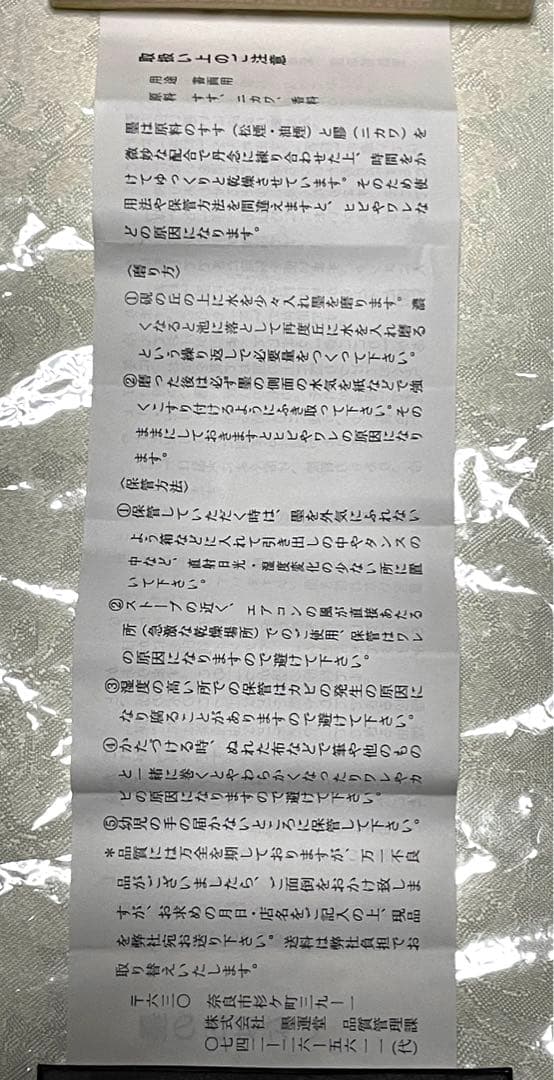 取扱い上のご注意
用途　書画用
原料　すす、ニカワ、香料
墨は原料のすす（松煙・油煙）と膠（ニカワ）を
微妙な配合で丹念に練り合わせた上、時間をか
けてゆっくりと乾燥させています。そのため使
用法や保管方法を間違えますと、ヒビやワレな
どの原因になります。
〈磨り方〉
①硯の丘の上に水を少々入れ墨を磨ります。濃
くなると池に落として再度丘に水を入れ磨る
という繰り返しで必要量をつくって下さい。
②磨った後は必ず墨の側面の水気を紙などで強
くこすり付けるようにふき取って下さい。その
ままにしておきますとヒビやワレの原因になり
ます。
〈保管方法〉
①保管していただく時は、墨を外気にふれない
よう箱などに入れて引き出しの中やタンスの
中など、直射日光・湿度変化の少ない所に置
いて下さい。
②ストーブの近く、エアコンの風が直接あたる
所（急激な乾燥場所）でのご使用、保管はワレ
の原因になりますので避けて下さい。
③湿度の高い所での保管はカビの発生の原因に
なり腐ることがありますので避けて下さい。
④かたづける時、ぬれた布などで筆や他のもの
と一緒に巻くとやわらかくなったりワレやカ
ビの原因になりますので避けて下さい。
⑤幼児の手の届かないところに保管して下さい。
＊品質には万全を期しておりますが、万一不良
品がございましたら、ご面倒をおかけ致しま
すが、お求めの月日・店名をご記入の上、現品
を弊社宛お送り下さい。送料は弊社負担でお
取り替えいたします。
〒六三〇　奈良市杉ケ町三九ー一
株式会社　墨運堂　品質管理課
〇七四二ー二六ー五六一一（代）